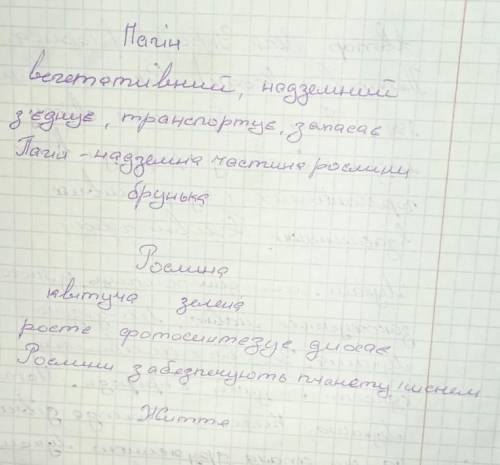 Пагін
вегетативний, надземний
з'єднує, транспортує, запасає
Пагін - надземна частина рослини
брунька
Рослина
квітуча зелена
росте фотосинтезує дихає
Рослини забезпечують планету киснем
Життя